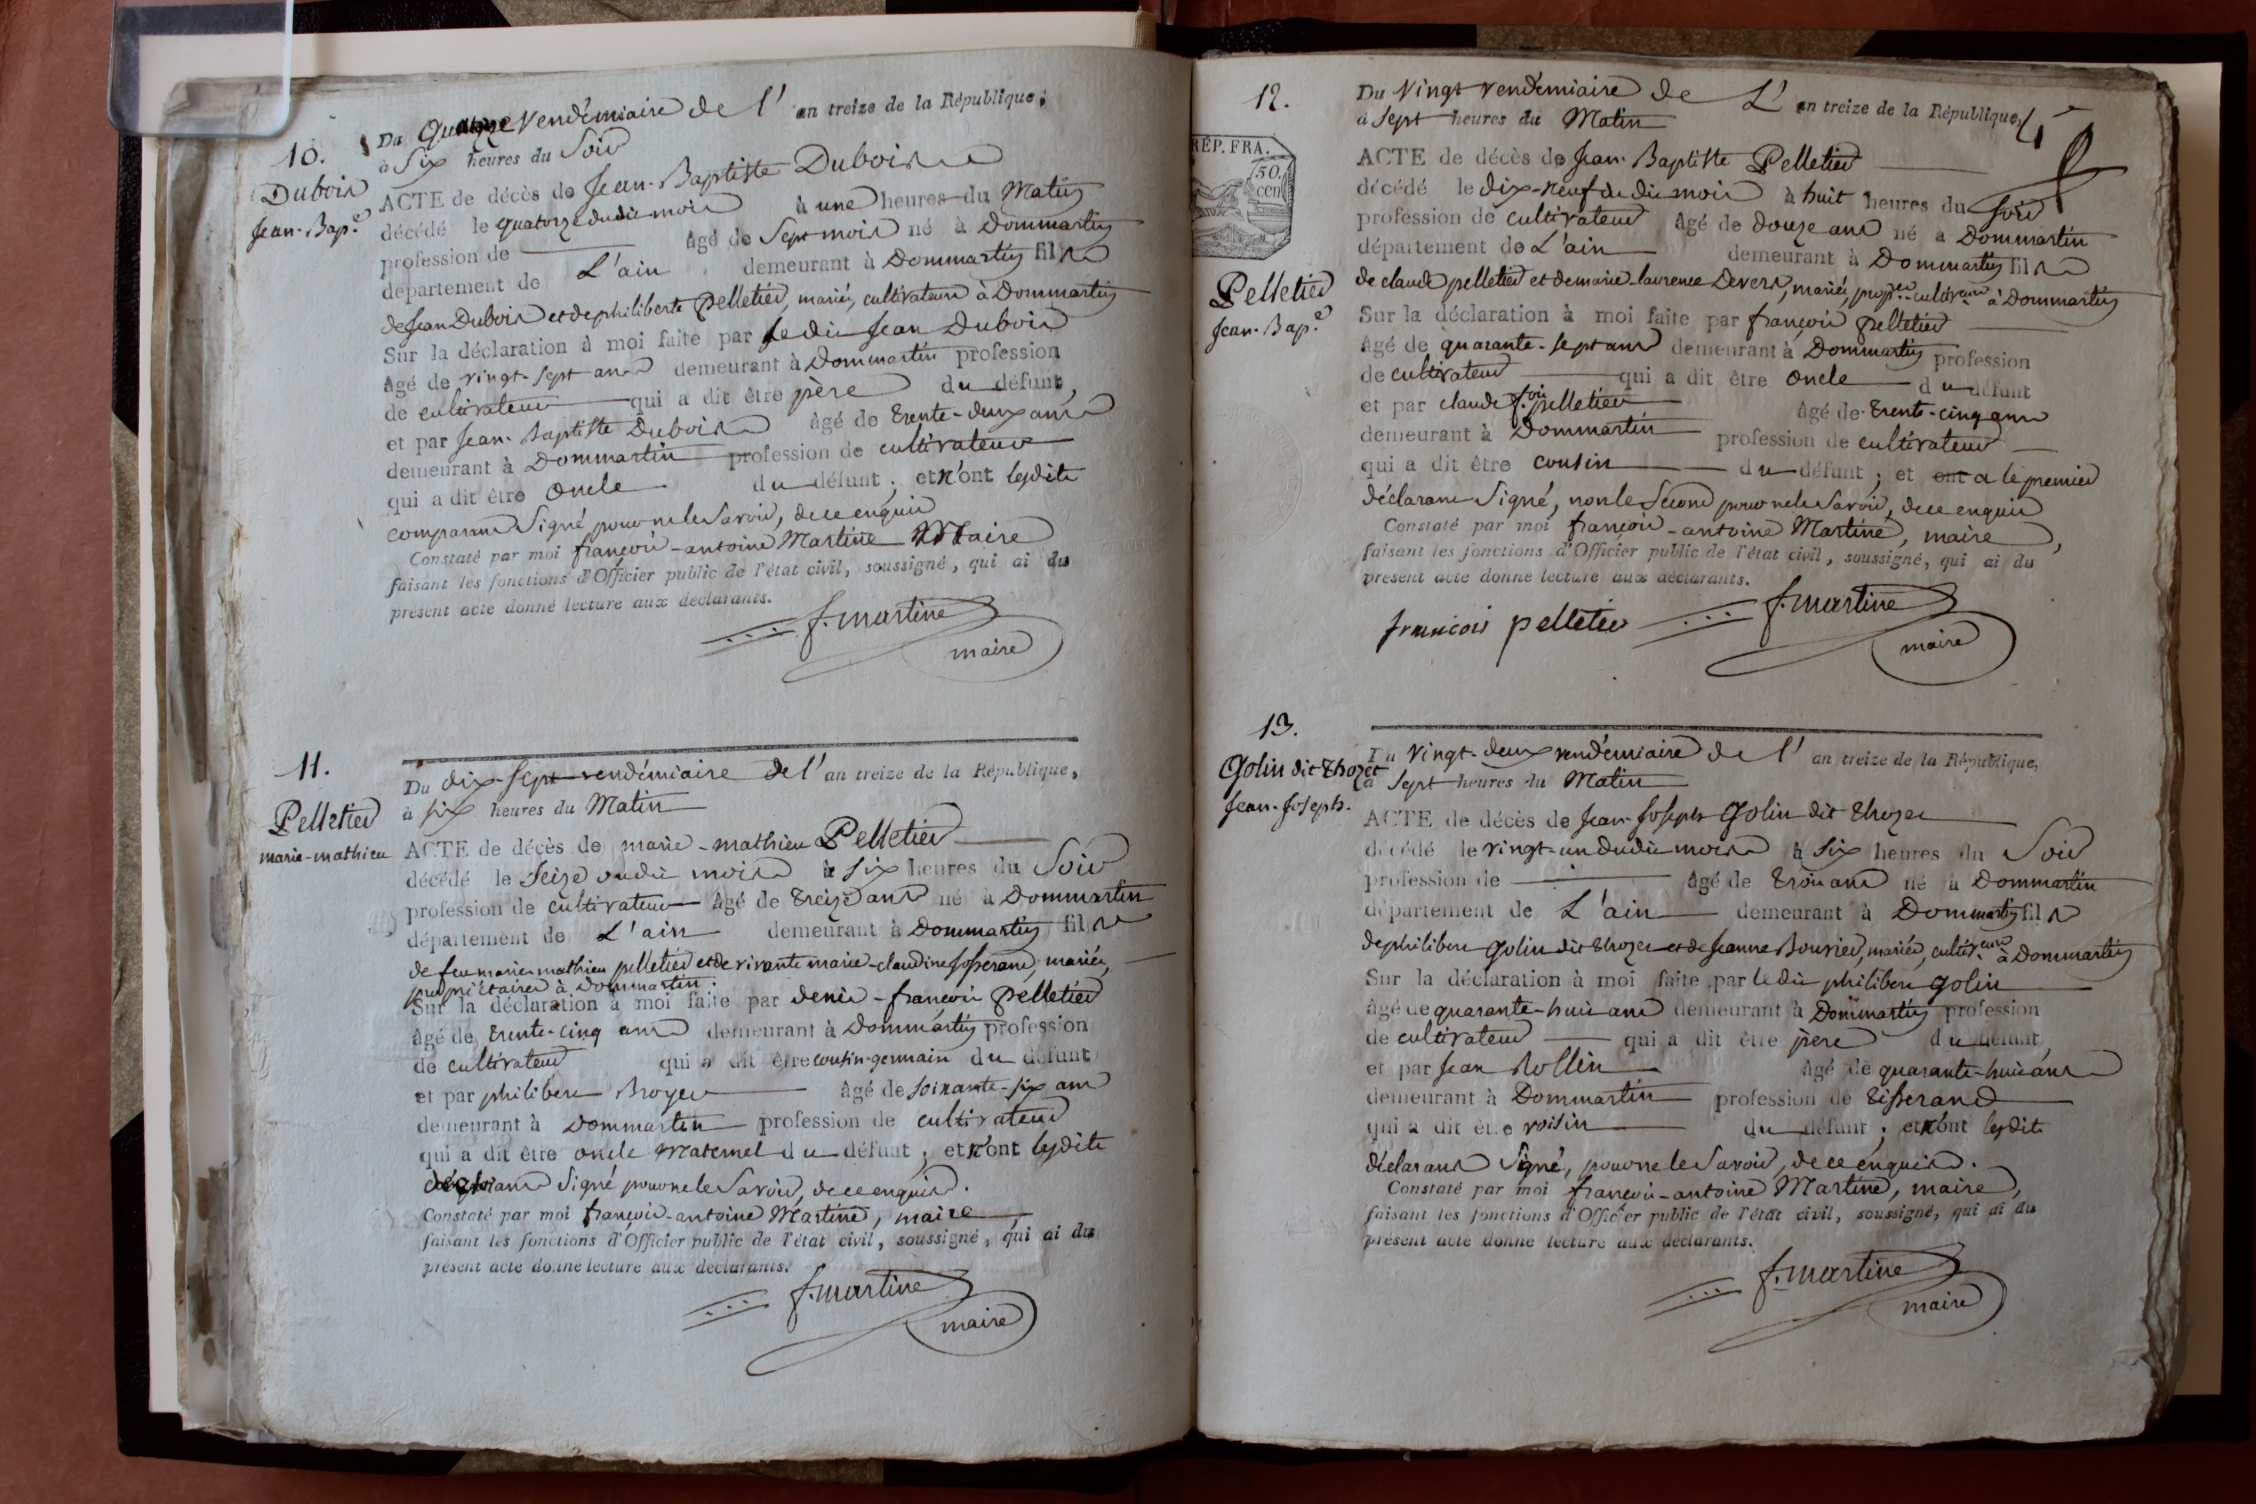 10.
Dubois
Jean-Bap.e
Du quatorze vendémiaire de l'an treize de la République;
à six heures du soir
ACTE de décès de Jean-Baptiste Dubois
décédé le quatorze dudit mois à une heures du Matin
profession de âgé de Sept mois né à Dommartin
département de L'ain demeurant à Dommartin fils
de Jean Dubois et de philiberte Pelletier, mariés, cultivateurs à Dommartin
Sur la déclaration à moi faite par ledit Jean Dubois
âgé de vingt-sept ans demeurant à Dommartin profession
de cultivateur qui a dit être père du défunt,
et par Jean-Baptiste Dubois âgé de trente-deux ans
demeurant à Dommartin profession de cultivateur
qui a dit être oncle du défunt; et n'ont lesdits
comparans Signé pour ne le Savoir, de ce enquis
Constaté par moi françois-antoine Martine Maire
faisant les fonctions d'Officier public de l'état civil, soussigné, qui ai du
présent acte donné lecture aux déclarants.
f. martine
maire
11.
Pelletier
marie-mathieu
Du dix-sept vendémiaire de l'an treize de la République,
à six heures du Matin
ACTE de décès de marie-mathieu Pelletier
décédé le Seize dudit mois à six heures du Soir
profession de cultivateur âgé de treize ans né à Dommartin
département de L'ain demeurant à Dommartin fils
de feu marie-mathieu pelletier et de vivante marie-claudine josserand, mariés,
propriétaires à Dommartin.
Sur la déclaration à moi faite par denis-françois Pelletier
âgé de trente-cinq ans demeurant à Dommartin profession
de cultivateur qui a dit être cousin-germain du défunt
et par philibert Broyer âgé de soixante-six ans
demeurant à Dommartin profession de cultivateur
qui a dit être oncle maternel du défunt; et n'ont lesdits
déclarans Signé pour ne le Savoir, de ce enquis.
Constaté par moi françois-antoine Martine, maire,
faisant les fonctions d'Officier public de l'état civil, soussigné, qui ai du
présent acte donné lecture aux déclarants.
f. martine
maire
12.
RÉP. FRA.
50.
cen
Pelletier
Jean-Bap.e
Du vingt vendémiaire de L'an treize de la République,
à sept heures du Matin
ACTE de décès de Jean-Baptiste Pelletier
décédé le dix-neuf du dit mois à huit heures du soir
profession de cultivateur âgé de douze ans né à Dommartin
département de L'ain demeurant à Dommartin fils
de claude pelletier et de marie-laurence Devers, mariés, prop.res cultiv.eurs à Dommartin
Sur la déclaration à moi faite par françois pelletier
âgé de quarante-sept ans demeurant à Dommartin profession
de cultivateur qui a dit être oncle du défunt
et par claude f.ois pelletier âgé de trente-cinq ans
demeurant à Dommartin profession de cultivateur
qui a dit être cousin du défunt; et ont a le premier
déclarant Signé, non le Second pour ne le Savoir, de ce enquis
Constaté par moi françois-antoine Martine, maire,
faisant les fonctions d'Officier public de l'état civil, soussigné, qui ai du
présent acte donné lecture aux déclarants.
francois pelletier
f. martine
maire
13.
Golin dit Thozet
Jean-Joseph.
Du vingt-deux vendémiaire de l'an treize de la République,
à sept heures du Matin
ACTE de décès de Jean-Joseph Golin dit thozet
décédé le vingt-un dudit mois à six heures du Soir
profession de âgé de trois ans né à Dommartin
département de L'ain demeurant à Dommartin fils
de philibert Golin dit thozet et de Jeanne Bouvier, mariés, cultiv.eurs à Dommartin
Sur la déclaration à moi faite par ledit philibert golin
âgé de quarante-huit ans demeurant à Dommartin profession
de cultivateur qui a dit être père du défunt,
et par Jean Rollin âgé de quarante-huit ans
demeurant à Dommartin profession de tisserand
qui a dit être voisin du défunt; et n'ont lesdits
déclarans Signé, pour ne le Savoir, de ce enquis.
Constaté par moi françois-antoine Martine, maire,
faisant les fonctions d'Officier public de l'état civil, soussigné, qui ai du
présent acte donné lecture aux déclarants.
f. martine
maire